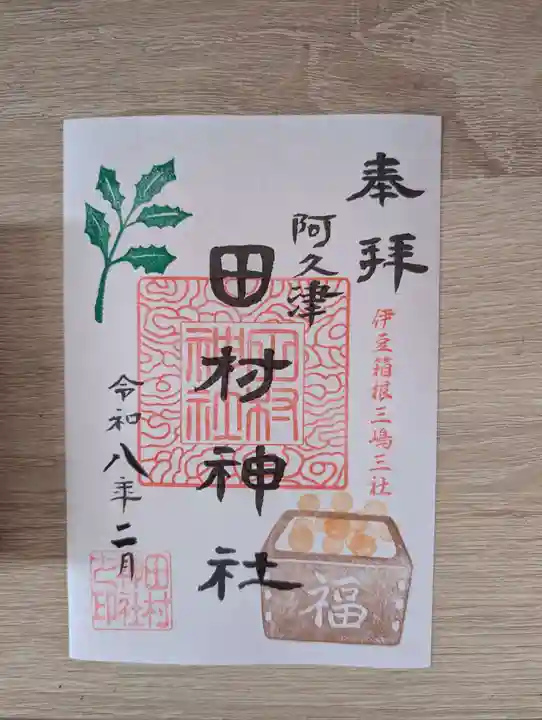 奉拝
伊豆箱根三嶋三社
阿久津
田村神社
田村神社
令和八年二月
田村神社之印
福